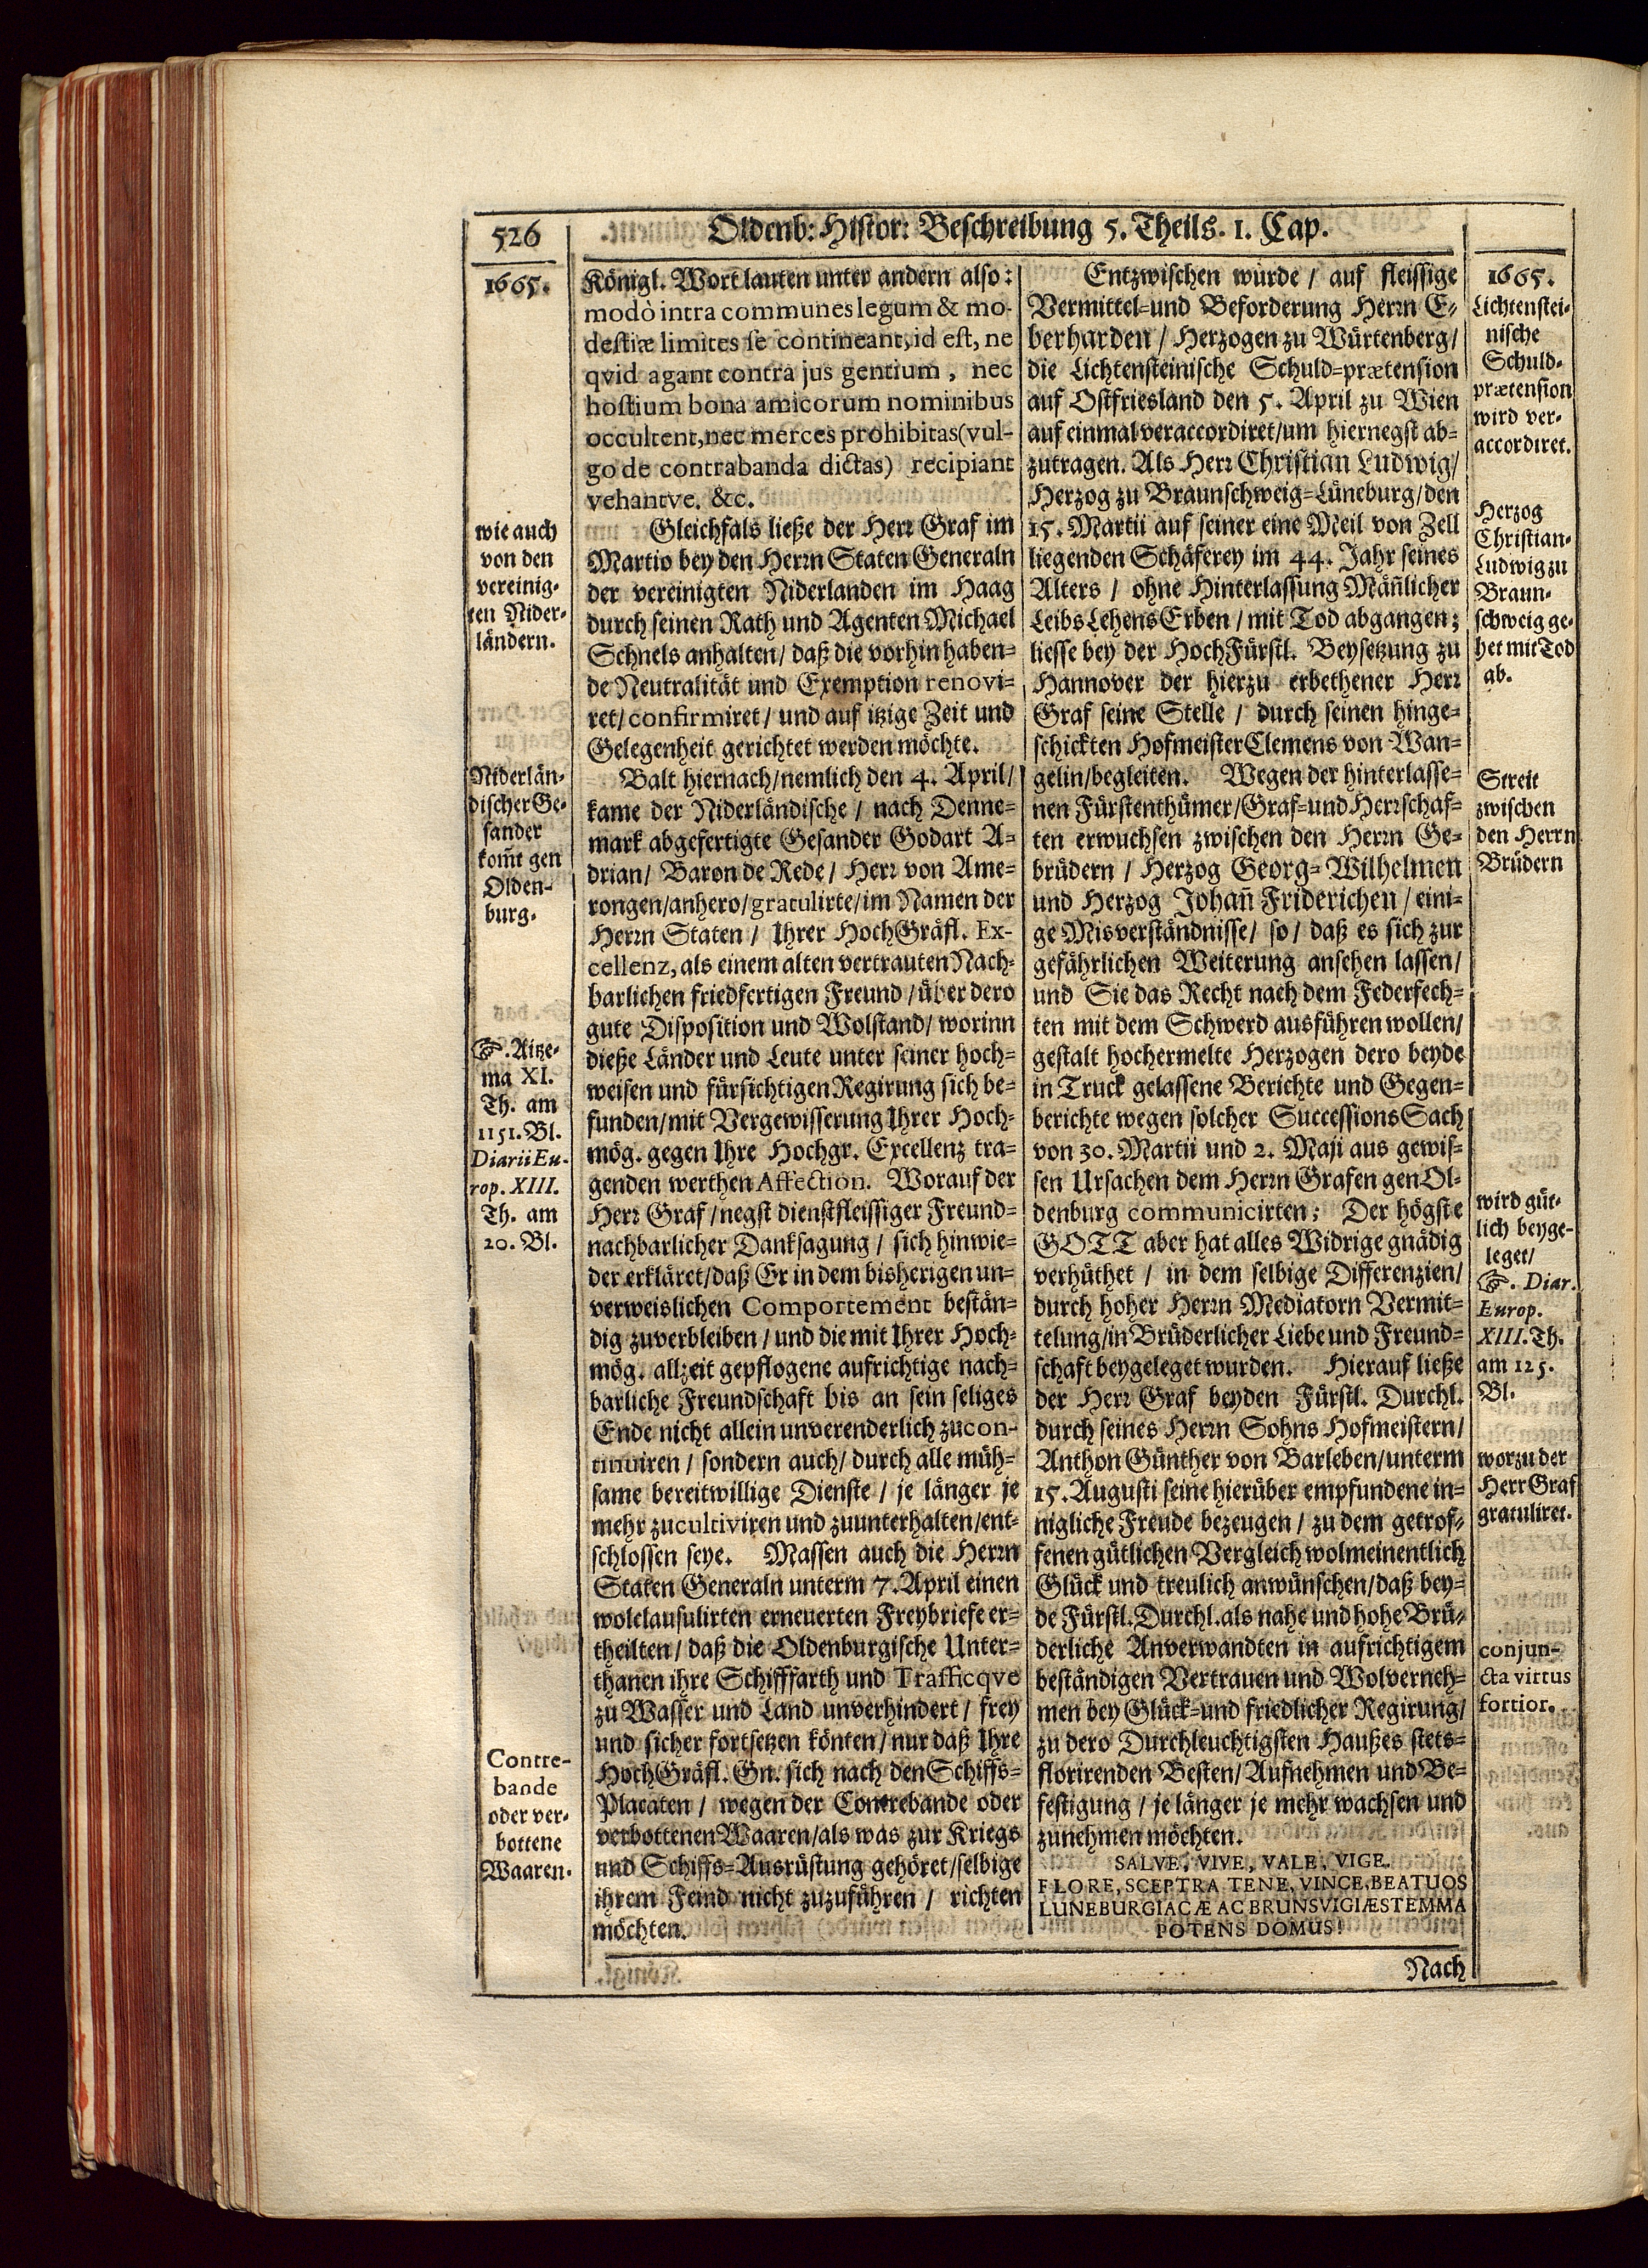 526
Oldenb: Histor: Beschreibung 5. Theils. 1. Cap.
1665.
wie auch
von den
vereinig-
ten Nider-
ländern.
Niderlän-
discher Ge-
sander
kom̃t gen
Olden-
burg.
☞. Aitze-
ma XI.
Th. am
1151. Bl.
Diarii Eu-
rop. XIII.
Th. am
20. Bl.
Contre-
bande
oder ver-
bottene
Waaren.
Königl. Wort lauten unter andern also:
modò intra communes legum & mo-
destiæ limites se contineant, id est, ne
qvid agant contra jus gentium, nec
hostium bona amicorum nominibus
occultent, nec merces prohibitas (vul-
go de contrabanda dictas) recipiant
vehantve. &c.
Gleichfals ließe der Herr Graf im
Martio bey den Herrn Staten Generaln
der vereinigten Niderlanden im Haag
durch seinen Rath und Agenten Michael
Schnels anhalten / daß die vorhin haben-
de Neutralität und Exemption renovi-
ret / confirmiret / und auf itzige Zeit und
Gelegenheit gerichtet werden möchte.
Balt hiernach / nemlich den 4. April /
kame der Niderländische / nach Denne-
mark abgefertigte Gesander Godart A-
drian / Baron de Rede / Herr von Ame-
rongen / anhero / gratulirte / im Namen der
Herrn Staten / Ihrer HochGräfl. Ex-
cellenz, als einem alten vertrauten Nach-
barlichen friedfertigen Freund / über dero
gute Disposition und Wolstand / worinn
dieße Länder und Leute unter seiner hoch-
weisen und fürsichtigen Regirung sich be-
funden / mit Vergewisserung Ihrer Hoch-
mög. gegen Ihre Hochgr. Excellenz tra-
genden werthen Affection. Worauf der
Herr Graf / negst dienstfleissiger Freund-
nachbarlicher Danksagung / sich hinwie-
der erkläret / daß Er in dem bisherigen un-
verweislichen Comportement bestän-
dig zuverbleiben / und die mit Ihrer Hoch-
mög. allzeit gepflogene aufrichtige nach-
barliche Freundschaft bis an sein seliges
Ende nicht allein unverenderlich zucon-
tinuiren / sondern auch / durch alle müh-
same bereitwillige Dienste / je länger je
mehr zucultiviren und zuunterhalten / ent-
schlossen seye. Massen auch die Herrn
Staten Generaln unterm 7. April einen
wolclausulirten erneuerten Freybriefe er-
theilten / daß die Oldenburgische Unter-
thanen ihre Schifffarth und Trafficqve
zu Wasser und Land unverhindert / frey
und sicher fortsetzen könten / nur daß Ihre
HochGräfl. Gn. sich nach den Schiffs-
Placaten / wegen der Contrebande oder
verbottenen Waaren / als was zur Kriegs
und Schiffs-Ausrüstung gehöret / selbige
ihrem Feind nicht zuzuführen / richten
möchten.
Entzwischen würde / auf fleissige
Vermittel- und Beforderung Herrn E-
berharden / Herzogen zu Würtenberg /
die Lichtensteinische Schuld-prætension
auf Ostfriesland den 5. April zu Wien
auf einmal veraccordiret / um hiernegst ab-
zutragen. Als Herr Christian Ludwig /
Herzog zu Braunschweig-Lüneburg / den
15. Martii auf seiner eine Meil von Zell
liegenden Schäferey im 44. Jahr seines
Alters / ohne Hinterlassung Mañlicher
Leibs Lehens Erben / mit Tod abgangen;
liesse bey der HochFürstl. Beysetzung zu
Hannover der hierzu erbethener Herr
Graf seine Stelle / durch seinen hinge-
schickten Hofmeister Clemens von Wan-
gelin / begleiten. Wegen der hinterlasse-
nen Fürstenthümer / Graf- und Herrschaf-
ten erwuchsen zwischen den Herrn Ge-
brüdern / Herzog Georg-Wilhelmen
und Herzog Johañ Friderichen / eini-
ge Misverständnisse / so / daß es sich zur
gefährlichen Weiterung ansehen lassen /
und Sie das Recht nach dem Federfech-
ten mit dem Schwerd ausführen wollen /
gestalt hochermelte Herzogen dero beyde
in Truck gelassene Berichte und Gegen-
berichte wegen solcher Successions Sach
von 30. Martii und 2. Maji aus gewis-
sen Ursachen dem Herrn Grafen gen Ol-
denburg communicirten; Der högste
GOTT aber hat alles Widrige gnädig
verhüthet / in dem selbige Differenzien /
durch hoher Herrn Mediatorn Vermit-
telung / in Brüderlicher Liebe und Freund-
schaft beygeleget wurden. Hierauf ließe
der Herr Graf beyden Fürstl. Durchl.
durch seines Herrn Sohns Hofmeistern /
Anthon Günther von Barleben / unterm
15. Augusti seine hierüber empfundene in-
nigliche Freude bezeugen / zu dem getrof-
fenen gütlichen Vergleich wolmeinentlich
Glück und treulich anwünschen / daß bey-
de Fürstl. Durchl. als nahe und hohe Brü-
derliche Anverwandten in aufrichtigem
beständigen Vertrauen und Wolverneh-
men bey Glück- und friedlicher Regirung /
zu dero Durchleuchtigsten Haußes stets-
florirenden Besten / Aufnehmen und Be-
festigung / je länger je mehr wachsen und
zunehmen möchten.
SALVE, VIVE, VALE, VIGE.
FLORE, SCEPTRA TENE, VINCE, BEATUOS
LUNEBURGIACÆ AC BRUNSVIGIÆ STEMMA
POTENS DOMUS!
1665.
Lichtenstei-
nische
Schuld-
prætension
wird ver-
accordiret.
Herzog
Christian-
Ludwig zu
Braun-
schweig ge-
het mit Tod
ab.
Streit
zwischen
den Herrn
Brüdern
wird güt-
lich beyge-
leget /
☞. Diar.
Europ.
XIII. Th.
am 125.
Bl.
worzu der
Herr Graf
gratuliret.
conjun-
cta virtus
fortior.
Nach